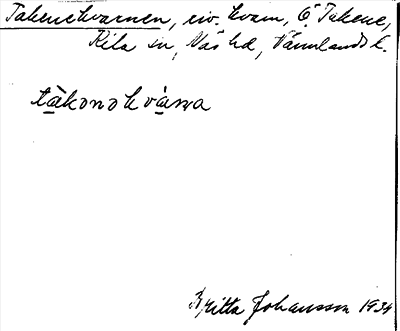 Takenekvarnen, riv. kvarn, Ö Takene,
Kila sn, Näs hd, Värmlands l.
tàkənəkvàɳa
Britta Johansson 1934